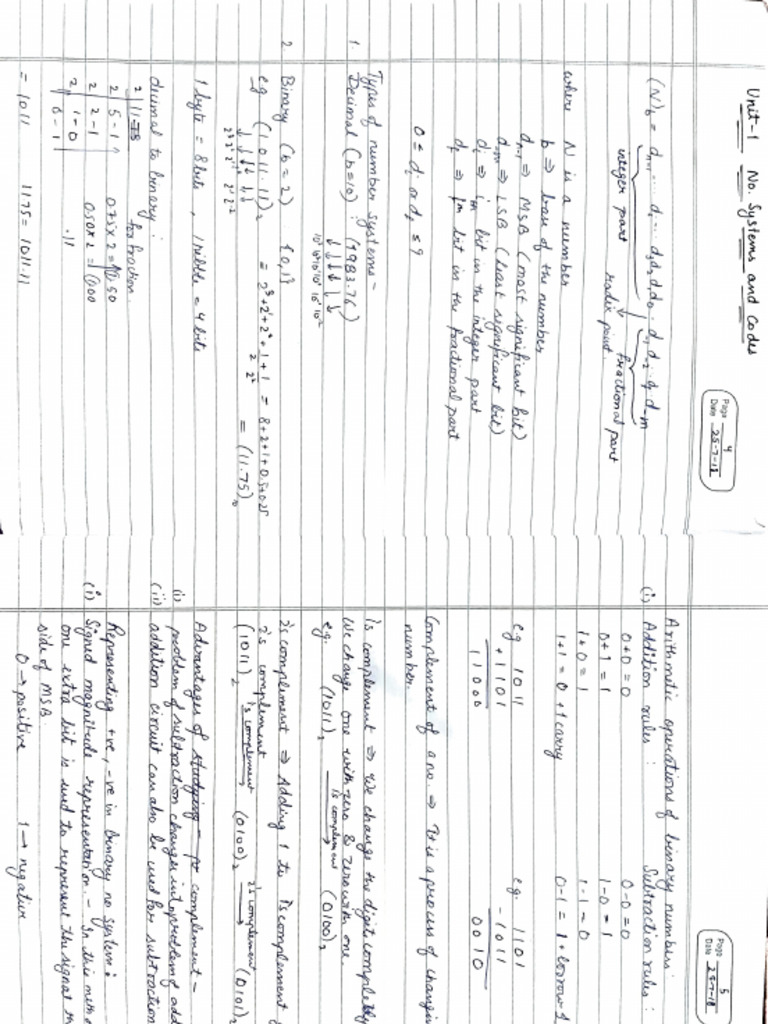 Unit-1 No. Systems and Codes
Page 4
Date 25-7-18
(N)b = dn-1 ... di ... d3d2d1d0 . d-1 d-2 .. d-f d-m
integer part radix point fractional part
where N is a number
b ⇒ base of the number
dn-1 ⇒ MSB (most significant bit)
⇒ LSB (least significant bit)
di ⇒ ith bit in the integer part
df ⇒ fth bit in the fractional part
0 ≤ di or df ≤ 9
Types of number systems -
1. Decimal (b=10) : (1983.76)
2. Binary (b=2) {0,1}
eg (1011.11)2 = 2³+2¹+2⁰+1/2+1/2² = 8+2+1+0.5+0.25
= (11.75)10
1 byte = 8 bits, 1 nibble = 4 bits
decimal to binary :
for fraction
2 11
2 5-1 0.75 x 2 = 1.50
2 2-1 0.50 x 2 = 1.00
2 1-0 .11
0-1
= 1011 11.75 = 1011.11
Page 5
Date 25-7-18
Arithmetic operations of binary numbers:
(i) Addition rules : Subtraction rules :
0+0=0 0-0=0
0+1=1 1-0=1
1+0=1 1-1=0
1+1=0+1 carry 0-1=1+borrow 1
eg 1011 eg. 1101
+1101 -1011
11000 0010
Complement of a no. ⇒ It is a process of changin
number.
1s complement ⇒ We change the digit completely
We change one with zero & zero with one.
eg. (1011)2 1s complement → (0100)2
2s complement ⇒ Adding 1 to 1s complement
2's complement
(1011)2 1's complement → (0100)2 2's complement → (0101)2
Advantages of studying complement -
(i) problem of subtraction changes into problem of add
(ii) addition circuit can also be used for subtraction
Representing +ve, -ve in binary no system:
(i) Signed magnitude representation - In this meth
one extra bit is used to represent the signal th
side of MSB.
0 → positive 1 → negative